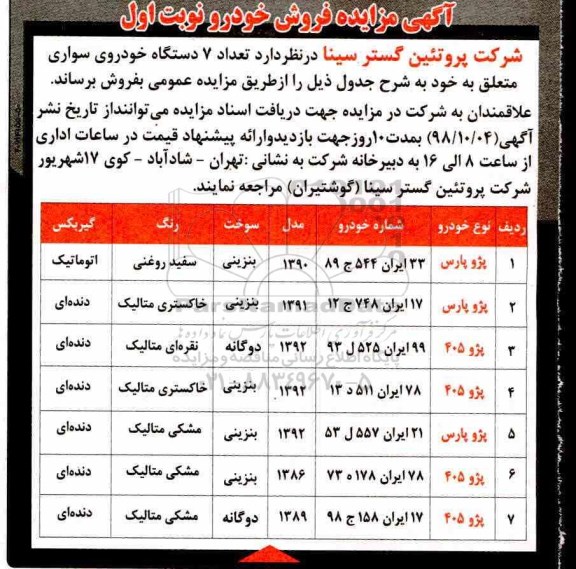 آگهی مزایده فروش خودرو نوبت اول
شرکت پروتئین گستر سینا درنظردارد تعداد ۷ دستگاه خودروی سواری
متعلق به خود به شرح جدول ذیل را ازطریق مزایده عمومی بفروش برساند.
علاقمندان به شرکت در مزایده جهت دریافت اسناد مزایده می‌تواننداز تاریخ نشر
آگهی(۹۸/۱۰/۰۴) بمدت۱۰روزجهت بازدیدوارائه پیشنهاد قیمت در ساعات اداری
از ساعت ۸ الی ۱۶ به دبیرخانه شرکت به نشانی :تهران - شادآباد - کوی ۱۷شهریور
شرکت پروتئین گستر سینا (گوشتیران) مراجعه نمایند.
ردیف نوع خودرو شماره خودرو مدل سوخت رنگ گیربکس
۱ پژو پارس ۳۳ ایران ۵۴۴ ج ۸۹ ۱۳۹۰ بنزینی سفید روغنی اتوماتیک
۲ پژو پارس ۱۷ ایران ۷۴۸ ج ۱۲ ۱۳۹۱ بنزینی خاکستری متالیک دنده‌ای
۳ پژو ۴۰۵ ۹۹ ایران ۵۲۵ ل ۹۳ ۱۳۹۲ دوگانه نقره‌ای متالیک دنده‌ای
۴ پژو ۴۰۵ ۷۸ ایران ۵۱۱ د ۱۳ ۱۳۹۲ بنزینی خاکستری متالیک دنده‌ای
۵ پژو پارس ۲۱ ایران ۵۵۷ ل ۵۳ ۱۳۹۲ بنزینی مشکی متالیک دنده‌ای
۶ پژو ۴۰۵ ۷۸ ایران ۱۷۸ ه ۷۳ ۱۳۸۶ بنزینی مشکی متالیک دنده‌ای
۷ پژو ۴۰۵ ۱۷ ایران ۱۵۸ ج ۹۸ ۱۳۸۹ دوگانه مشکی متالیک دنده‌ای
پایگاه اطلاع رسانی مناقصه و مزایده
۰۲۱-۸۸۳۴۹۶۷۰-۵